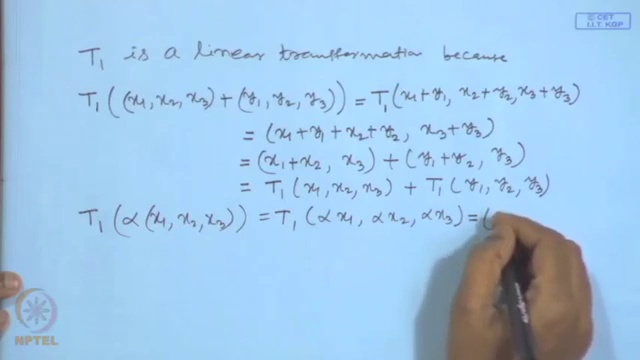 © CET
I.I.T. KGP
T₁ is a linear transformation because
T₁((x₁, x₂, x₃) + (y₁, y₂, y₃)) = T₁(x₁+y₁, x₂+y₂, x₃+y₃)
= (x₁+y₁+x₂+y₂, x₃+y₃)
= (x₁+x₂, x₃) + (y₁+y₂, y₃)
= T₁(x₁, x₂, x₃) + T₁(y₁, y₂, y₃)
T₁(α(x₁, x₂, x₃)) = T₁(αx₁, αx₂, αx₃) = (
NPTEL